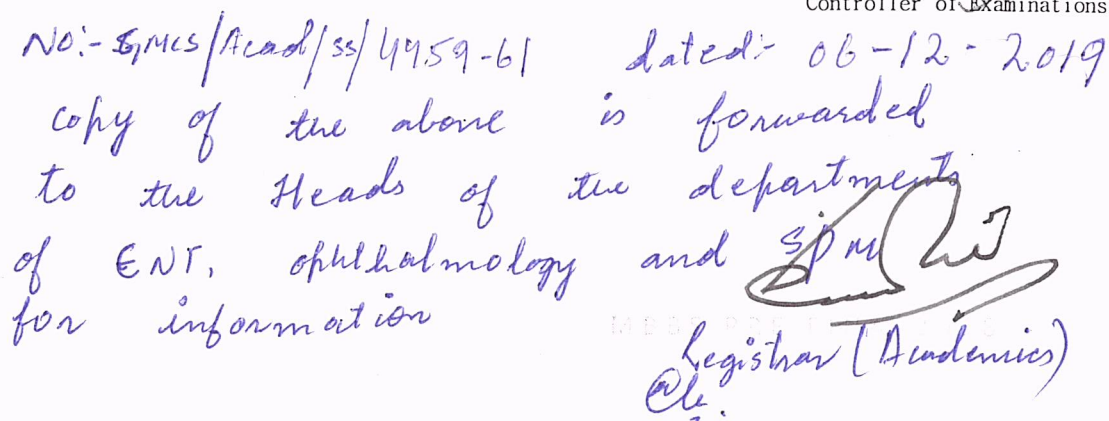 Controller of Examinations
No:- GMCS/Acad/SS/4959-61 dated:- 06-12-2019
copy of the above is forwarded
to the Heads of the departments
of ENT, ophthalmology and SPM
for information
Registrar (Academics)